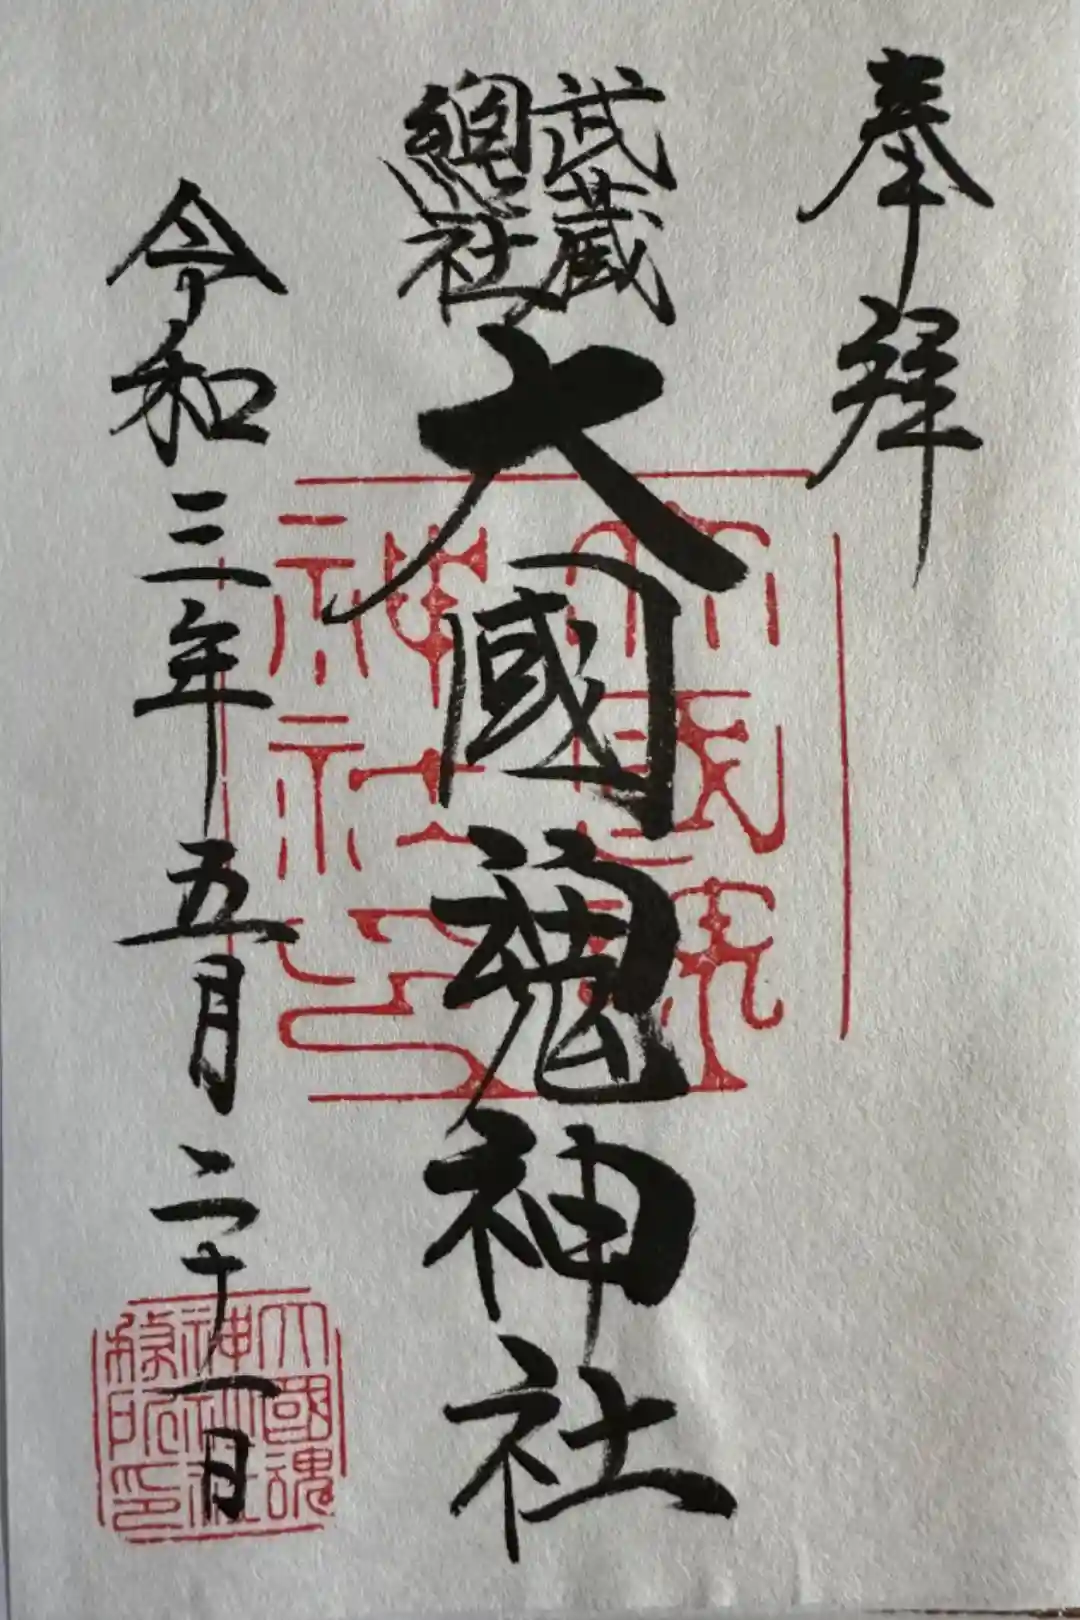 奉拝
武蔵
總社
大國魂神社
令和三年五月二十一日
大國魂
神社之印
大國魂
神社
務所印